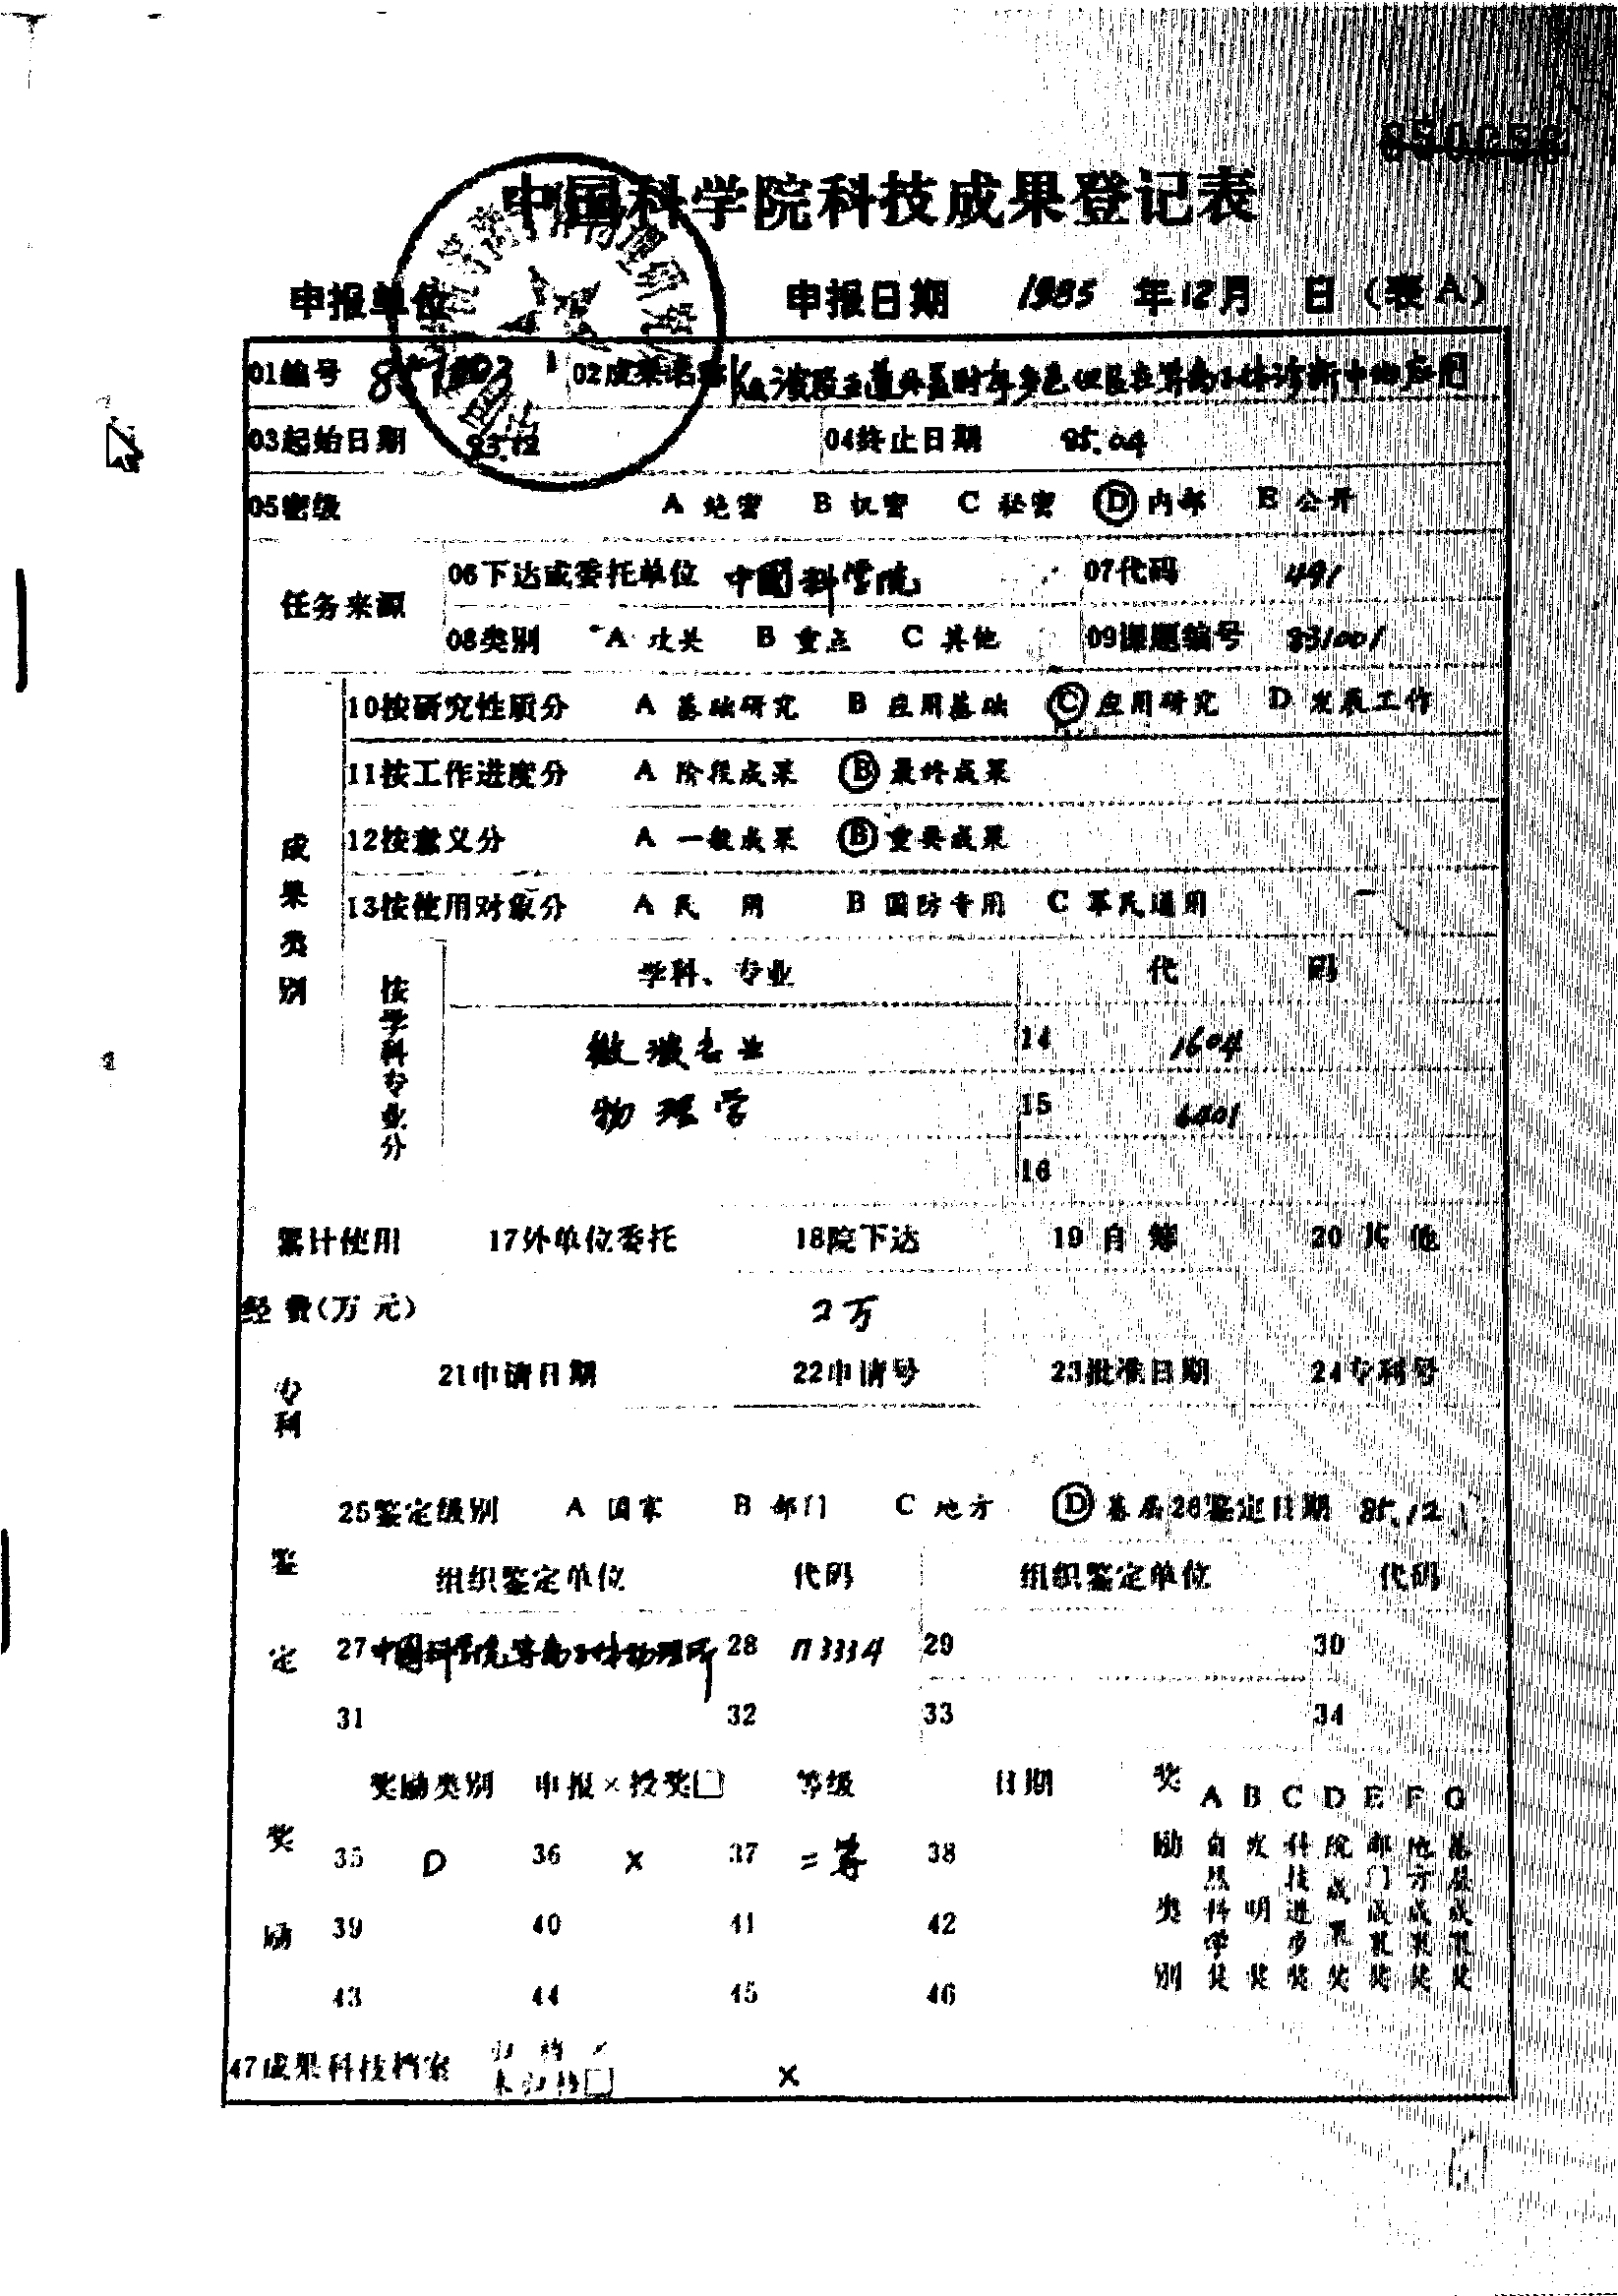 中国科学院科技成果登记表
申报单位 申报日期 1985 年12月 日（表A）
01编号 02成果名称
03起始日期 83.12 04终止日期 85.04
05密级 A 绝密 B 机密 C 秘密 D 内部 E 公开
任务来源 06下达或委托单位 中國科学院 07代码 491
08类别 A 攻关 B 重点 C 其他 09课题编号 831001
成果类别 10按研究性质分 A 基础研究 B 应用基础 C 应用研究 D 发展工作
11按工作进度分 A 阶段成果 B 最终成果
12按意义分 A 一般成果 B 重要成果
13按使用对象分 A 民 用 B 国防专用 C 军民通用
按学科专业分 学科、专业 代 码
微波专业 14 1604
物理学 15
16
累计使用 17外单位委托 18院下达 19 自 筹 20 其 他
经 费(万 元) 2万
专利 21申请日期 22申请号 23批准日期 24专利号
鉴定 25鉴定级别 A 国家 B 部门 C 地方 D 基层 26鉴定日期 85.12
组织鉴定单位 代码 组织鉴定单位 代码
27 中國科学院等离子体物理所 28 113334 29 30
31 32 33 34
奖励 奖励类别 申报×授奖□ 等级 日期 奖励类别 A B C D E F G
35 D 36 × 37 二等 38
39 40 41 42
43 44 45 46
自然科学奖 发明奖 科技进步奖 院成果奖 部门成果奖 地方成果奖 基层成果奖
47成果科技档案 归 档
未归档□ ×